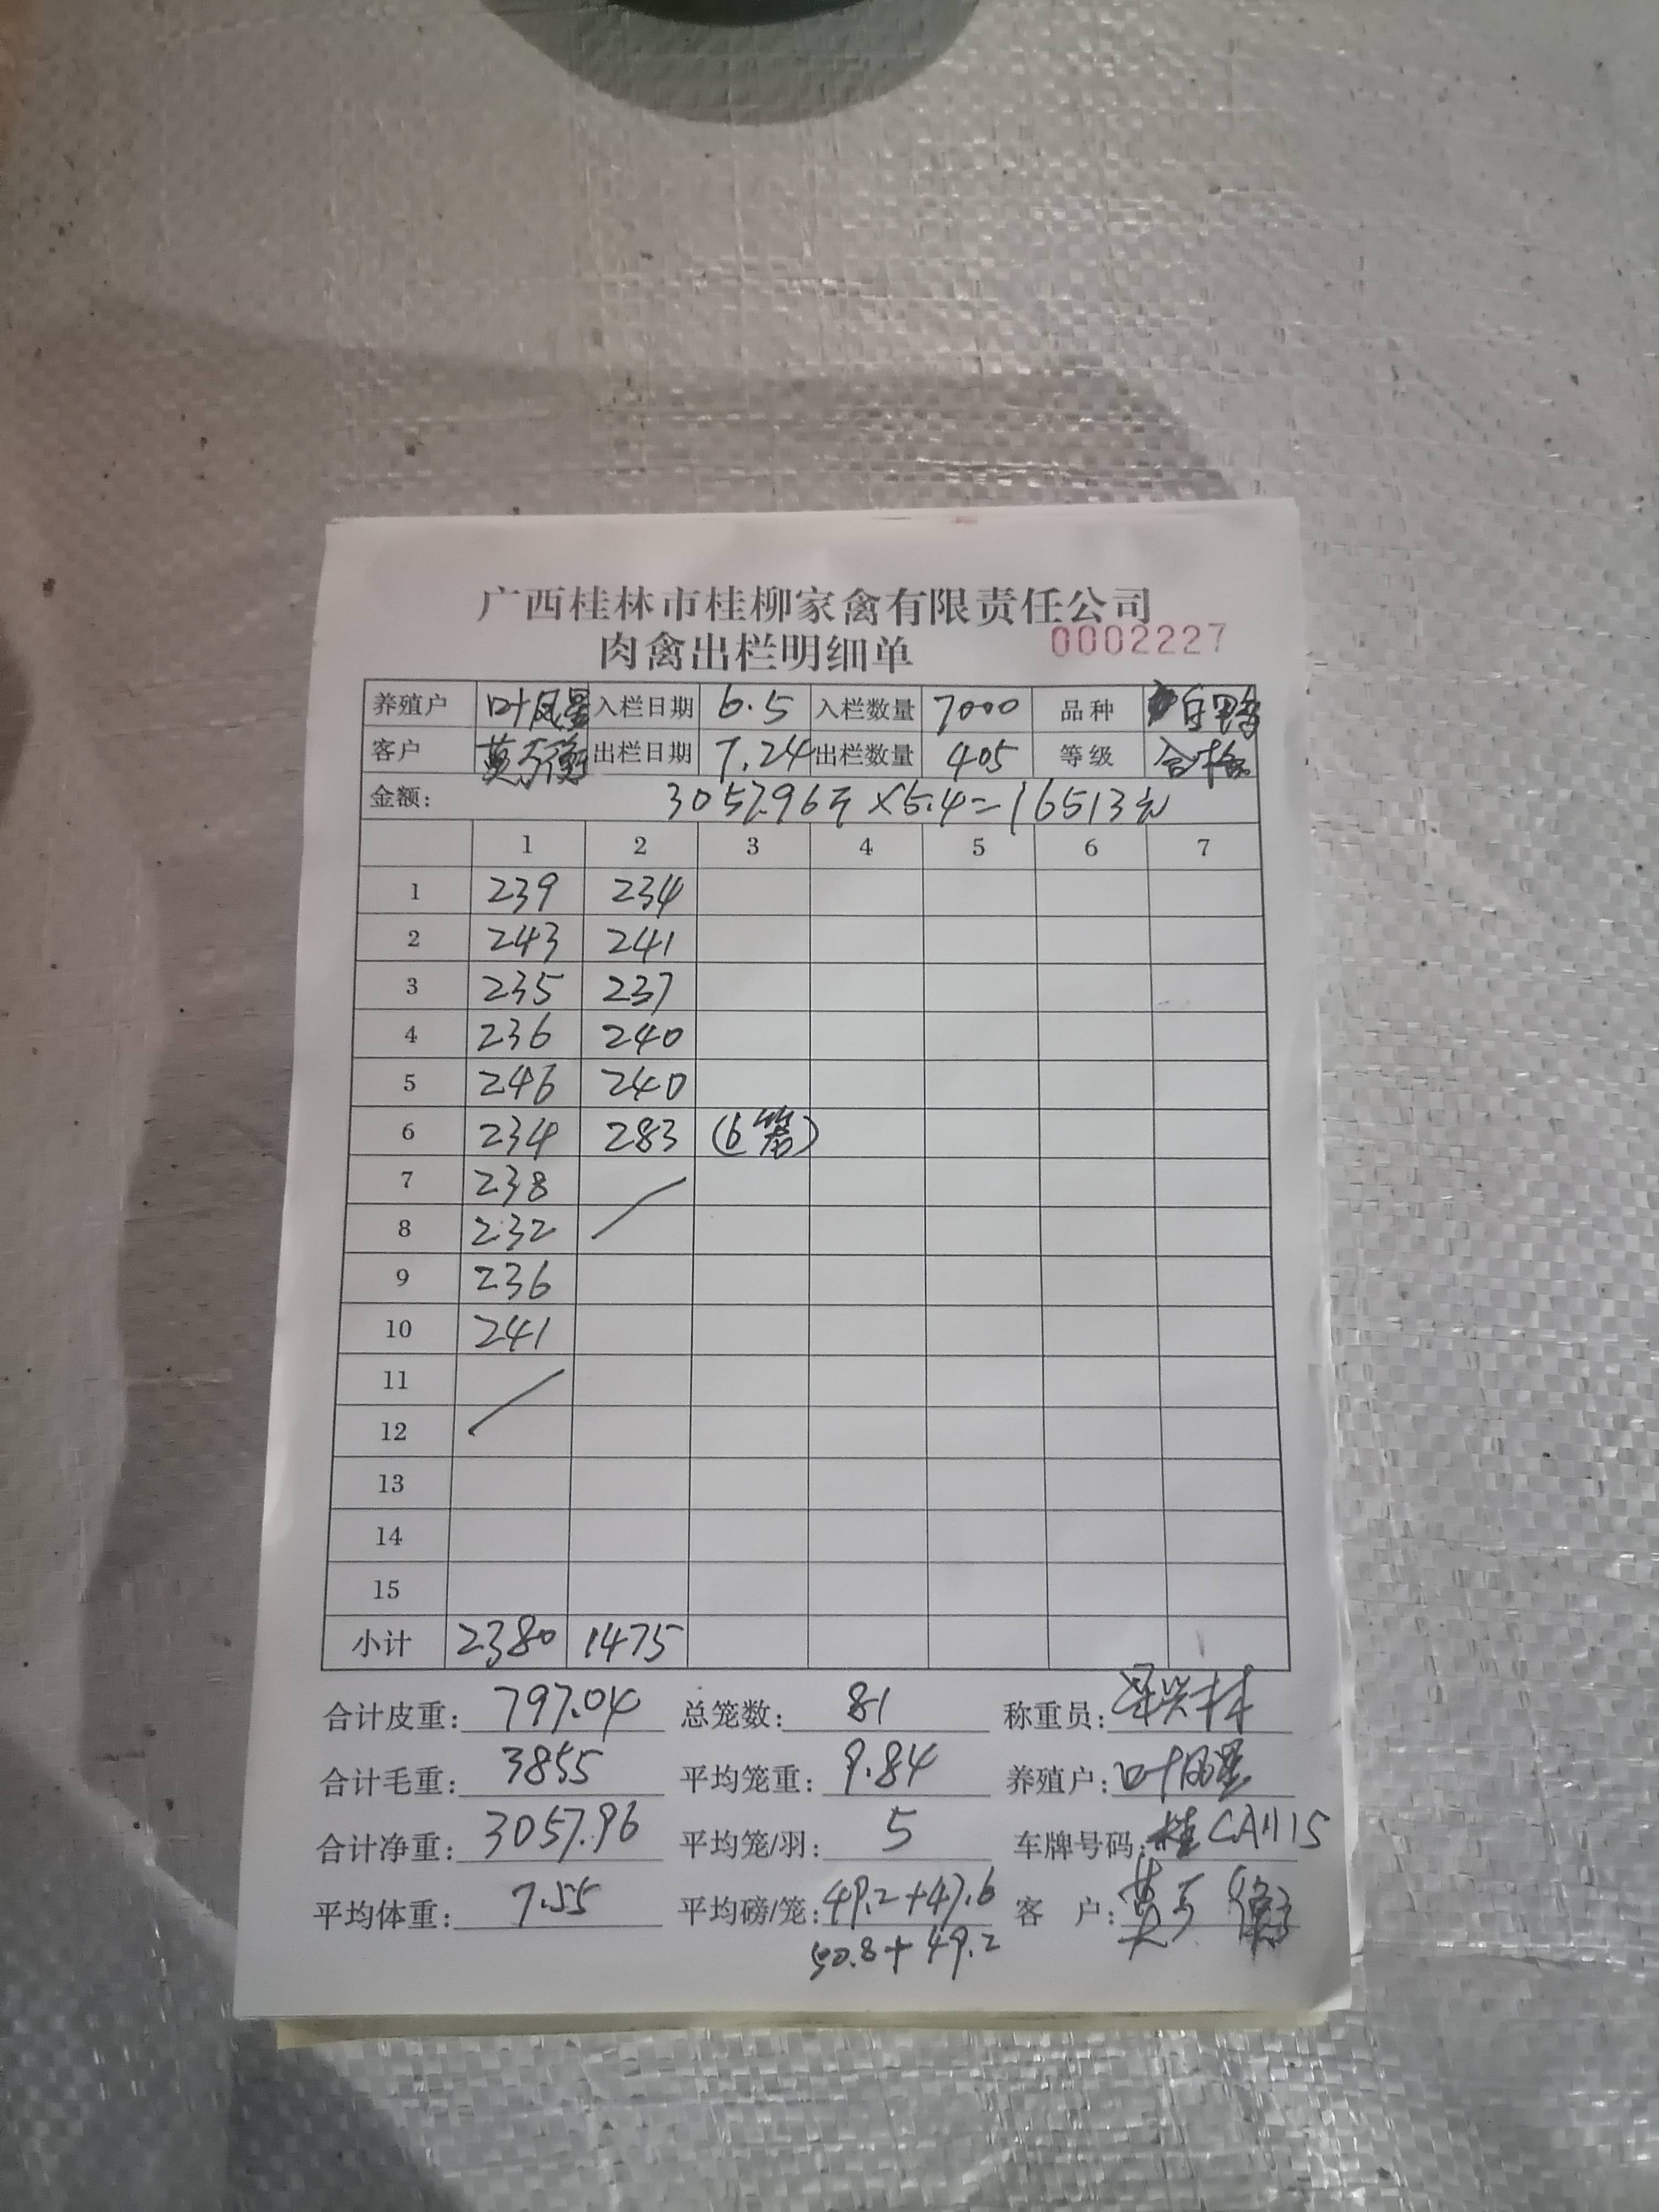 广西桂林市桂柳家禽有限责任公司
肉禽出栏明细单 0002227
养殖户 叶凤星 入栏日期 6.5 入栏数量 7000 品种 白鸭
客户 莫 衡 出栏日期 7.24 出栏数量 405 等级 合格
金额: 3057.96斤×5.4=16513元
1 2 3 4 5 6 7
1 239 234
2 243 241
3 235 237
4 236 240
5 246 240
6 234 283 (6笼)
7 238
8 232
9 236
10 241
11
12
13
14
15
小计 2380 1475
合计皮重: 797.04 总笼数: 81 称重员:
合计毛重: 3855 平均笼重: 9.84 养殖户: 叶凤星
合计净重: 3057.96 平均笼/羽: 5 车牌号码: 桂CA1115
平均体重: 7.55 平均磅/笼: 49.2+47.6 客 户: 莫 衡
50.8+49.2